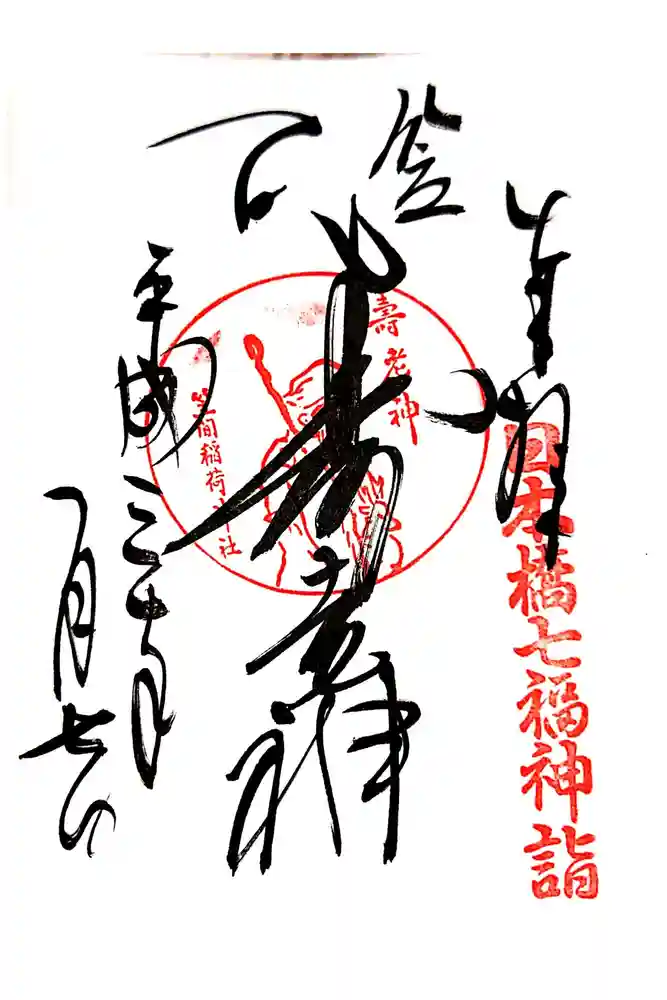 奉拝
日本橋七福神詣
笠間
寿老神
壽老神
笠間稲荷神社
平成三十年
一月七日